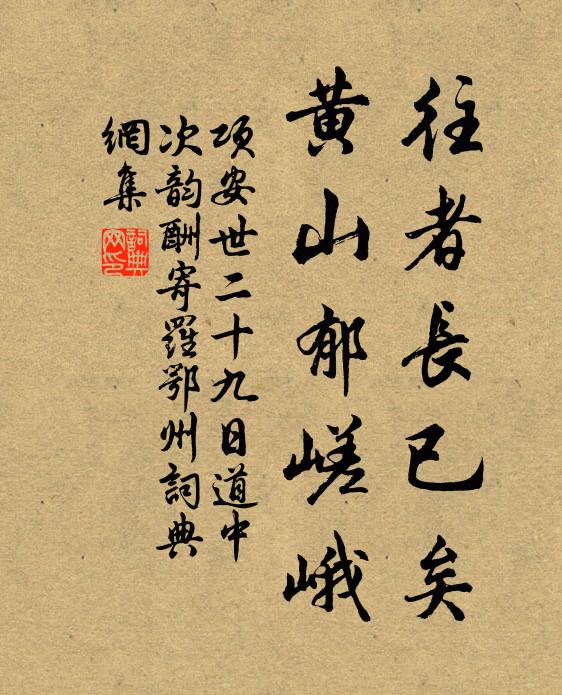 往者長已矣
黄山郁嵯峨
項安世二十九日道中
次韵酬寄羅鄂州詞典
網集
詞典
网印